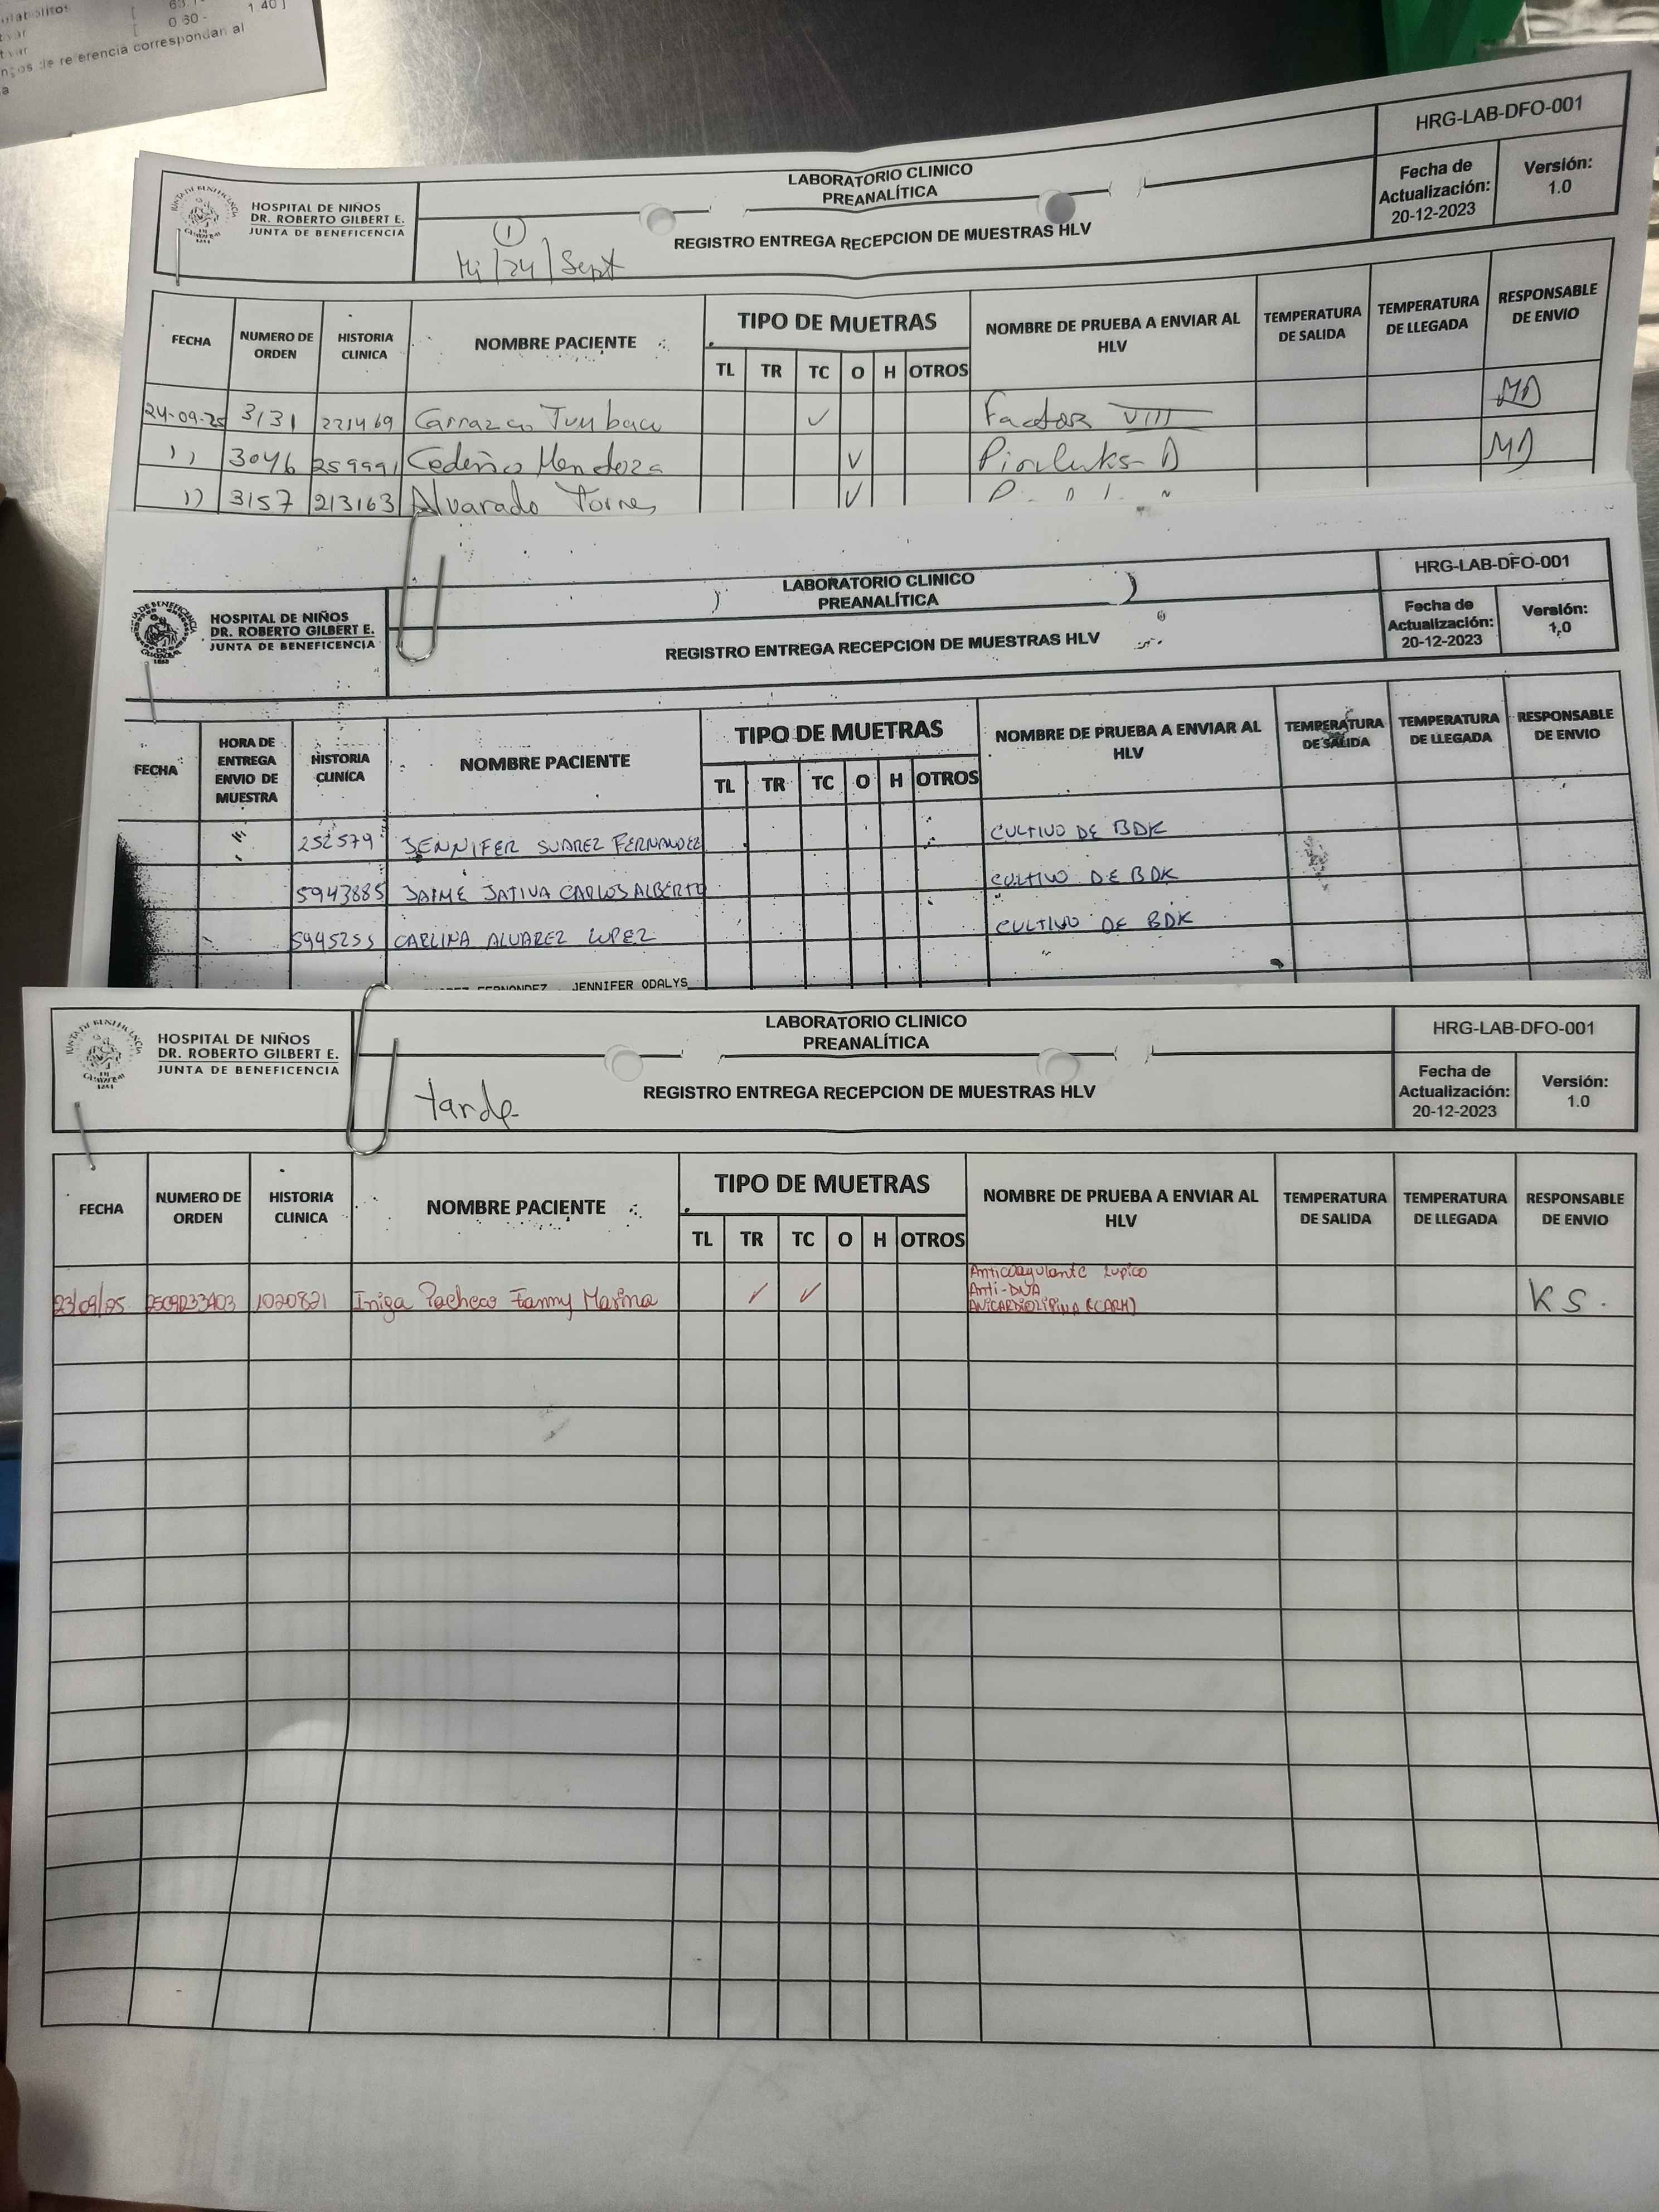 0.60 - 1.40]
de referencia correspondan al
a
HOSPITAL DE NIÑOS
DR. ROBERTO GILBERT E.
JUNTA DE BENEFICENCIA
LABORATORIO CLINICO
PREANALÍTICA
REGISTRO ENTREGA RECEPCION DE MUESTRAS HLV
1
Mi/24/Sept
HRG-LAB-DFO-001
Fecha de Actualización: 20-12-2023
Versión: 1.0
FECHA NUMERO DE ORDEN HISTORIA CLINICA NOMBRE PACIENTE TIPO DE MUETRAS NOMBRE DE PRUEBA A ENVIAR AL HLV TEMPERATURA DE SALIDA TEMPERATURA DE LLEGADA RESPONSABLE DE ENVIO
TL TR TC O H OTROS
24-09-25 3131 221469 Carrazco Tumbaco ✓ Factor VIII MD
11 3046 259991 Cedeño Mendoza ✓ MD
11 3157 213163 Alvarado Torres ✓
HOSPITAL DE NIÑOS
DR. ROBERTO GILBERT E.
JUNTA DE BENEFICENCIA
LABORATORIO CLINICO
PREANALÍTICA
REGISTRO ENTREGA RECEPCION DE MUESTRAS HLV
HRG-LAB-DFO-001
Fecha de Actualización: 20-12-2023
Versión: 1,0
FECHA HORA DE ENTREGA ENVIO DE MUESTRA HISTORIA CLINICA NOMBRE PACIENTE TIPO DE MUETRAS NOMBRE DE PRUEBA A ENVIAR AL HLV TEMPERATURA DE SALIDA TEMPERATURA DE LLEGADA RESPONSABLE DE ENVIO
TL TR TC O H OTROS
252579 JENNIFER SUAREZ FERNANDEZ CULTIVO DE BDK
5943885 JAIME JATIVA CARLOS ALBERTO CULTIVO DE BDK
5945255 CARLINA ALVAREZ LOPEZ CULTIVO DE BDK
FERNANDEZ JENNIFER ODALYS
HOSPITAL DE NIÑOS
DR. ROBERTO GILBERT E.
JUNTA DE BENEFICENCIA
LABORATORIO CLINICO
PREANALÍTICA
REGISTRO ENTREGA RECEPCION DE MUESTRAS HLV
tarde
HRG-LAB-DFO-001
Fecha de Actualización: 20-12-2023
Versión: 1.0
FECHA NUMERO DE ORDEN HISTORIA CLINICA NOMBRE PACIENTE TIPO DE MUETRAS NOMBRE DE PRUEBA A ENVIAR AL HLV TEMPERATURA DE SALIDA TEMPERATURA DE LLEGADA RESPONSABLE DE ENVIO
TL TR TC O H OTROS
Anticoagulante Lupico
23/09/25 2509233403 1020821 Iniga Pacheco Fanny Marina ✓ ✓ Anti-DNA K S.